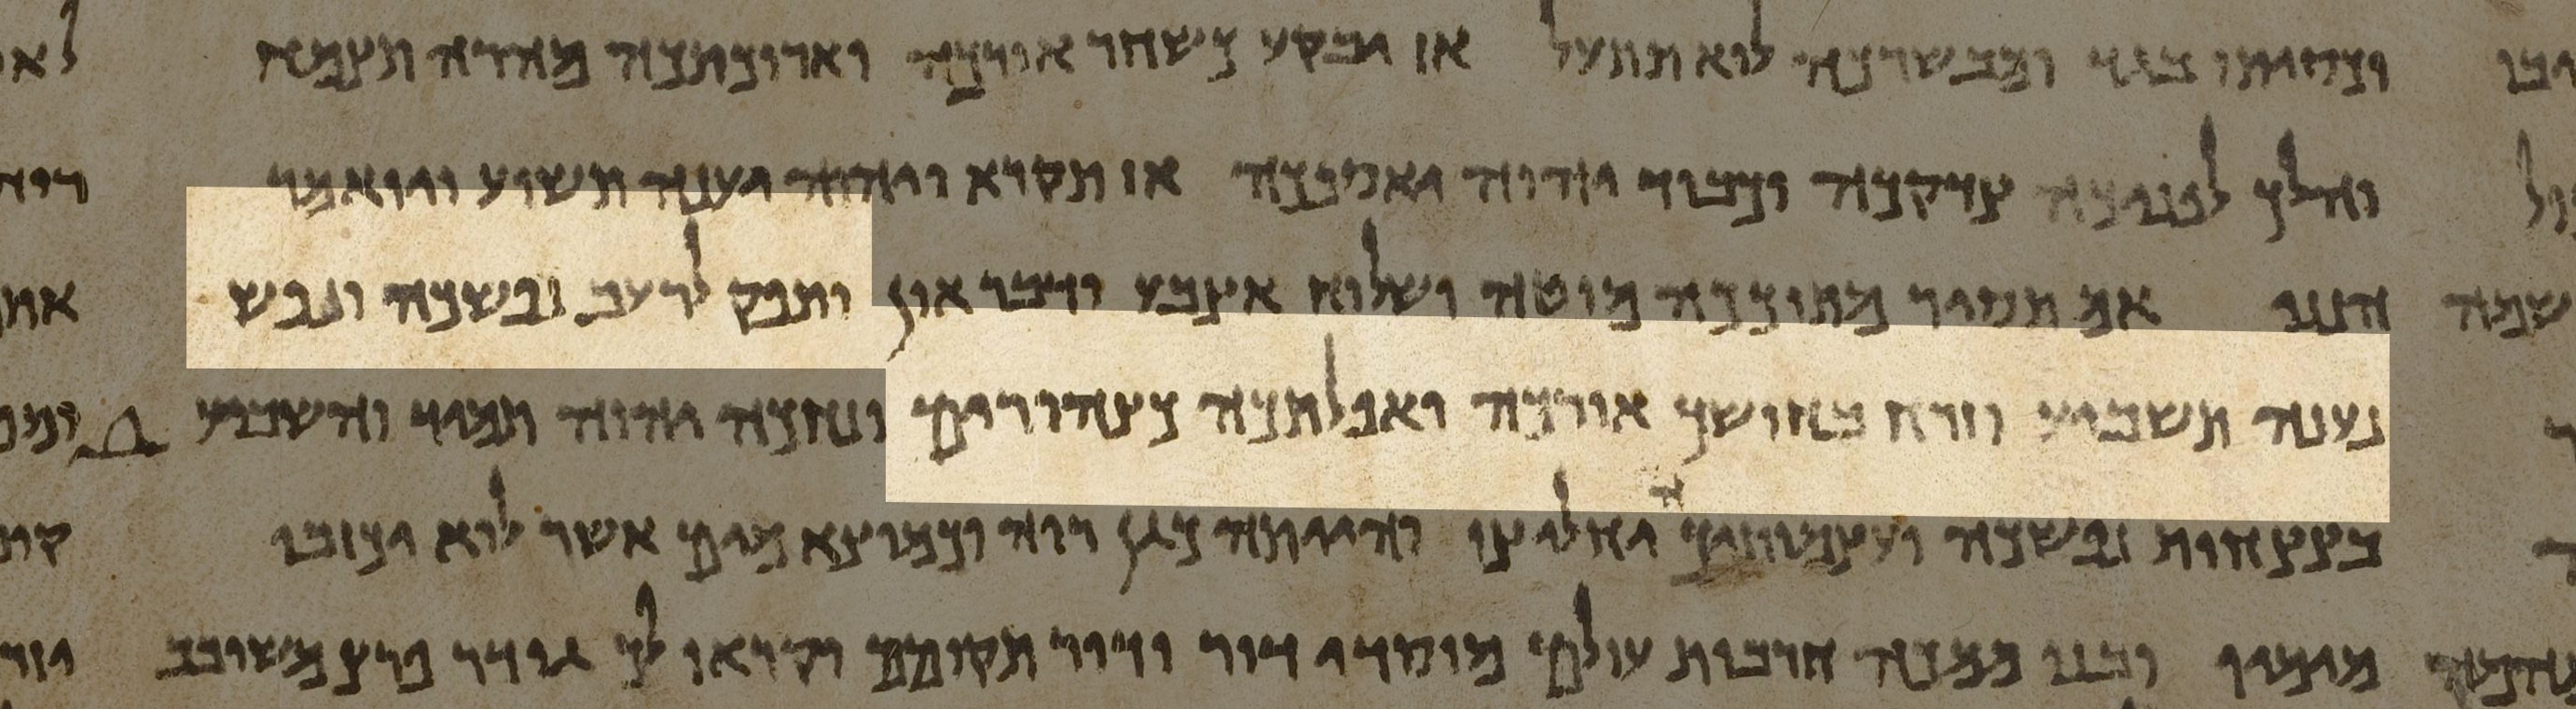 וכסיתו בגד ומבשרכה לוא תתעל אז יבקע כשחר אורכה וארוכתכה מהרה תצמח
והלך לפניכה צדקכה וכבוד יהוה יאספכה אז תקרא ויהוה יענה תשוע ויואמר
הנני אם תסיר מתוככה מוטה ושלוח אצבע ודבר און ותפק לרעב נפשכה ונפש
נענה תשביע וזרח בחושך אורכה ואפלתכה כצהורים ונחכה יהוה תמיד והשביע
בצצחות נפשכה ועצמותיכה יחליצו והייתה כגן רוה וכמוצא מים אשר לוא יכזבו
מימיו ובנו ממכה חרבות עולם מוסדי דור ודור תקומם וקראו לך גודר פרץ משובב